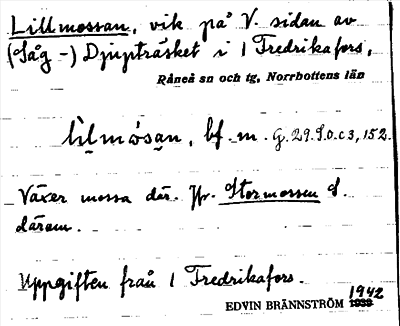 Lillmossan, vik på V. sidan av
(Såg-) Djupträsket i 1 Fredrikafors,
Råneå sn och tg, Norrbottens län
lìlmòsan, bf. m. G. 29. S.o. c 3, 152.
Växer mossa där. Jfr. Stormossen S.
därom.
Uppgiften från 1 Fredrikafors.
1942
EDVIN BRÄNNSTRÖM 1939